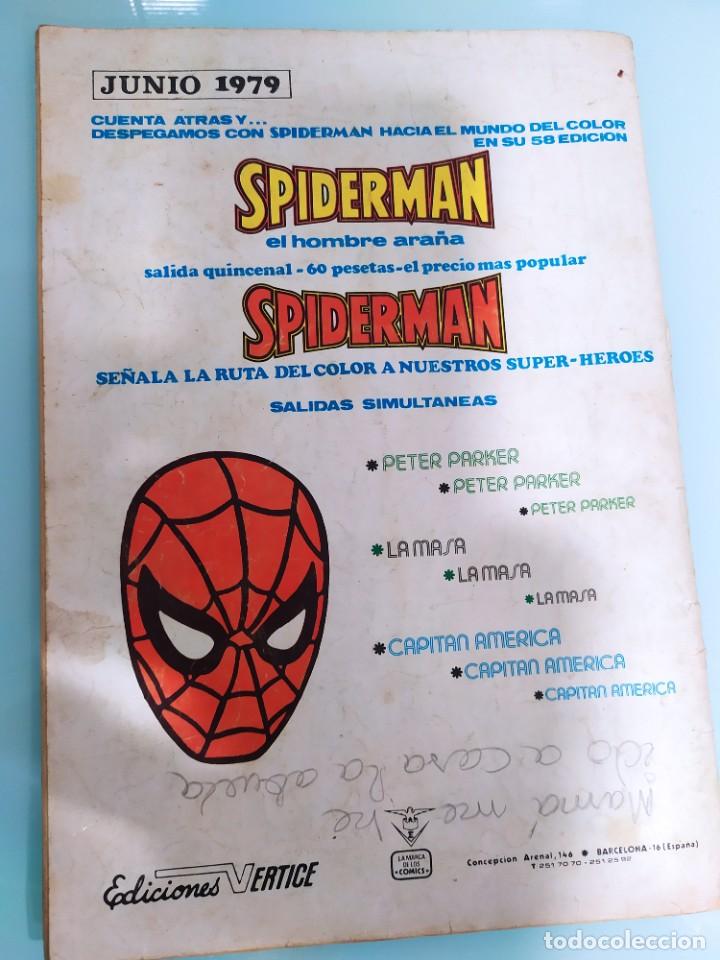 JUNIO 1979
CUENTA ATRAS Y...
DESPEGAMOS CON SPIDERMAN HACIA EL MUNDO DEL COLOR
EN SU 58 EDICION
SPIDERMAN
el hombre araña
salida quincenal - 60 pesetas - el precio mas popular
SPIDERMAN
SEÑALA LA RUTA DEL COLOR A NUESTROS SUPER-HEROES
SALIDAS SIMULTANEAS
* PETER PARKER
* PETER PARKER
* PETER PARKER
* LA MASA
* LA MASA
* LA MASA
* CAPITAN AMERICA
* CAPITAN AMERICA
* CAPITAN AMERICA
Mamá me he
ido a casa la abuela
LA MARCA
DE LOS
*COMICS*
Ediciones VERTICE
Concepcion Arenal, 146 * BARCELONA-16 (España)
T 251 70 70 - 251 25 92
todocoleccion
todocoleccion.net